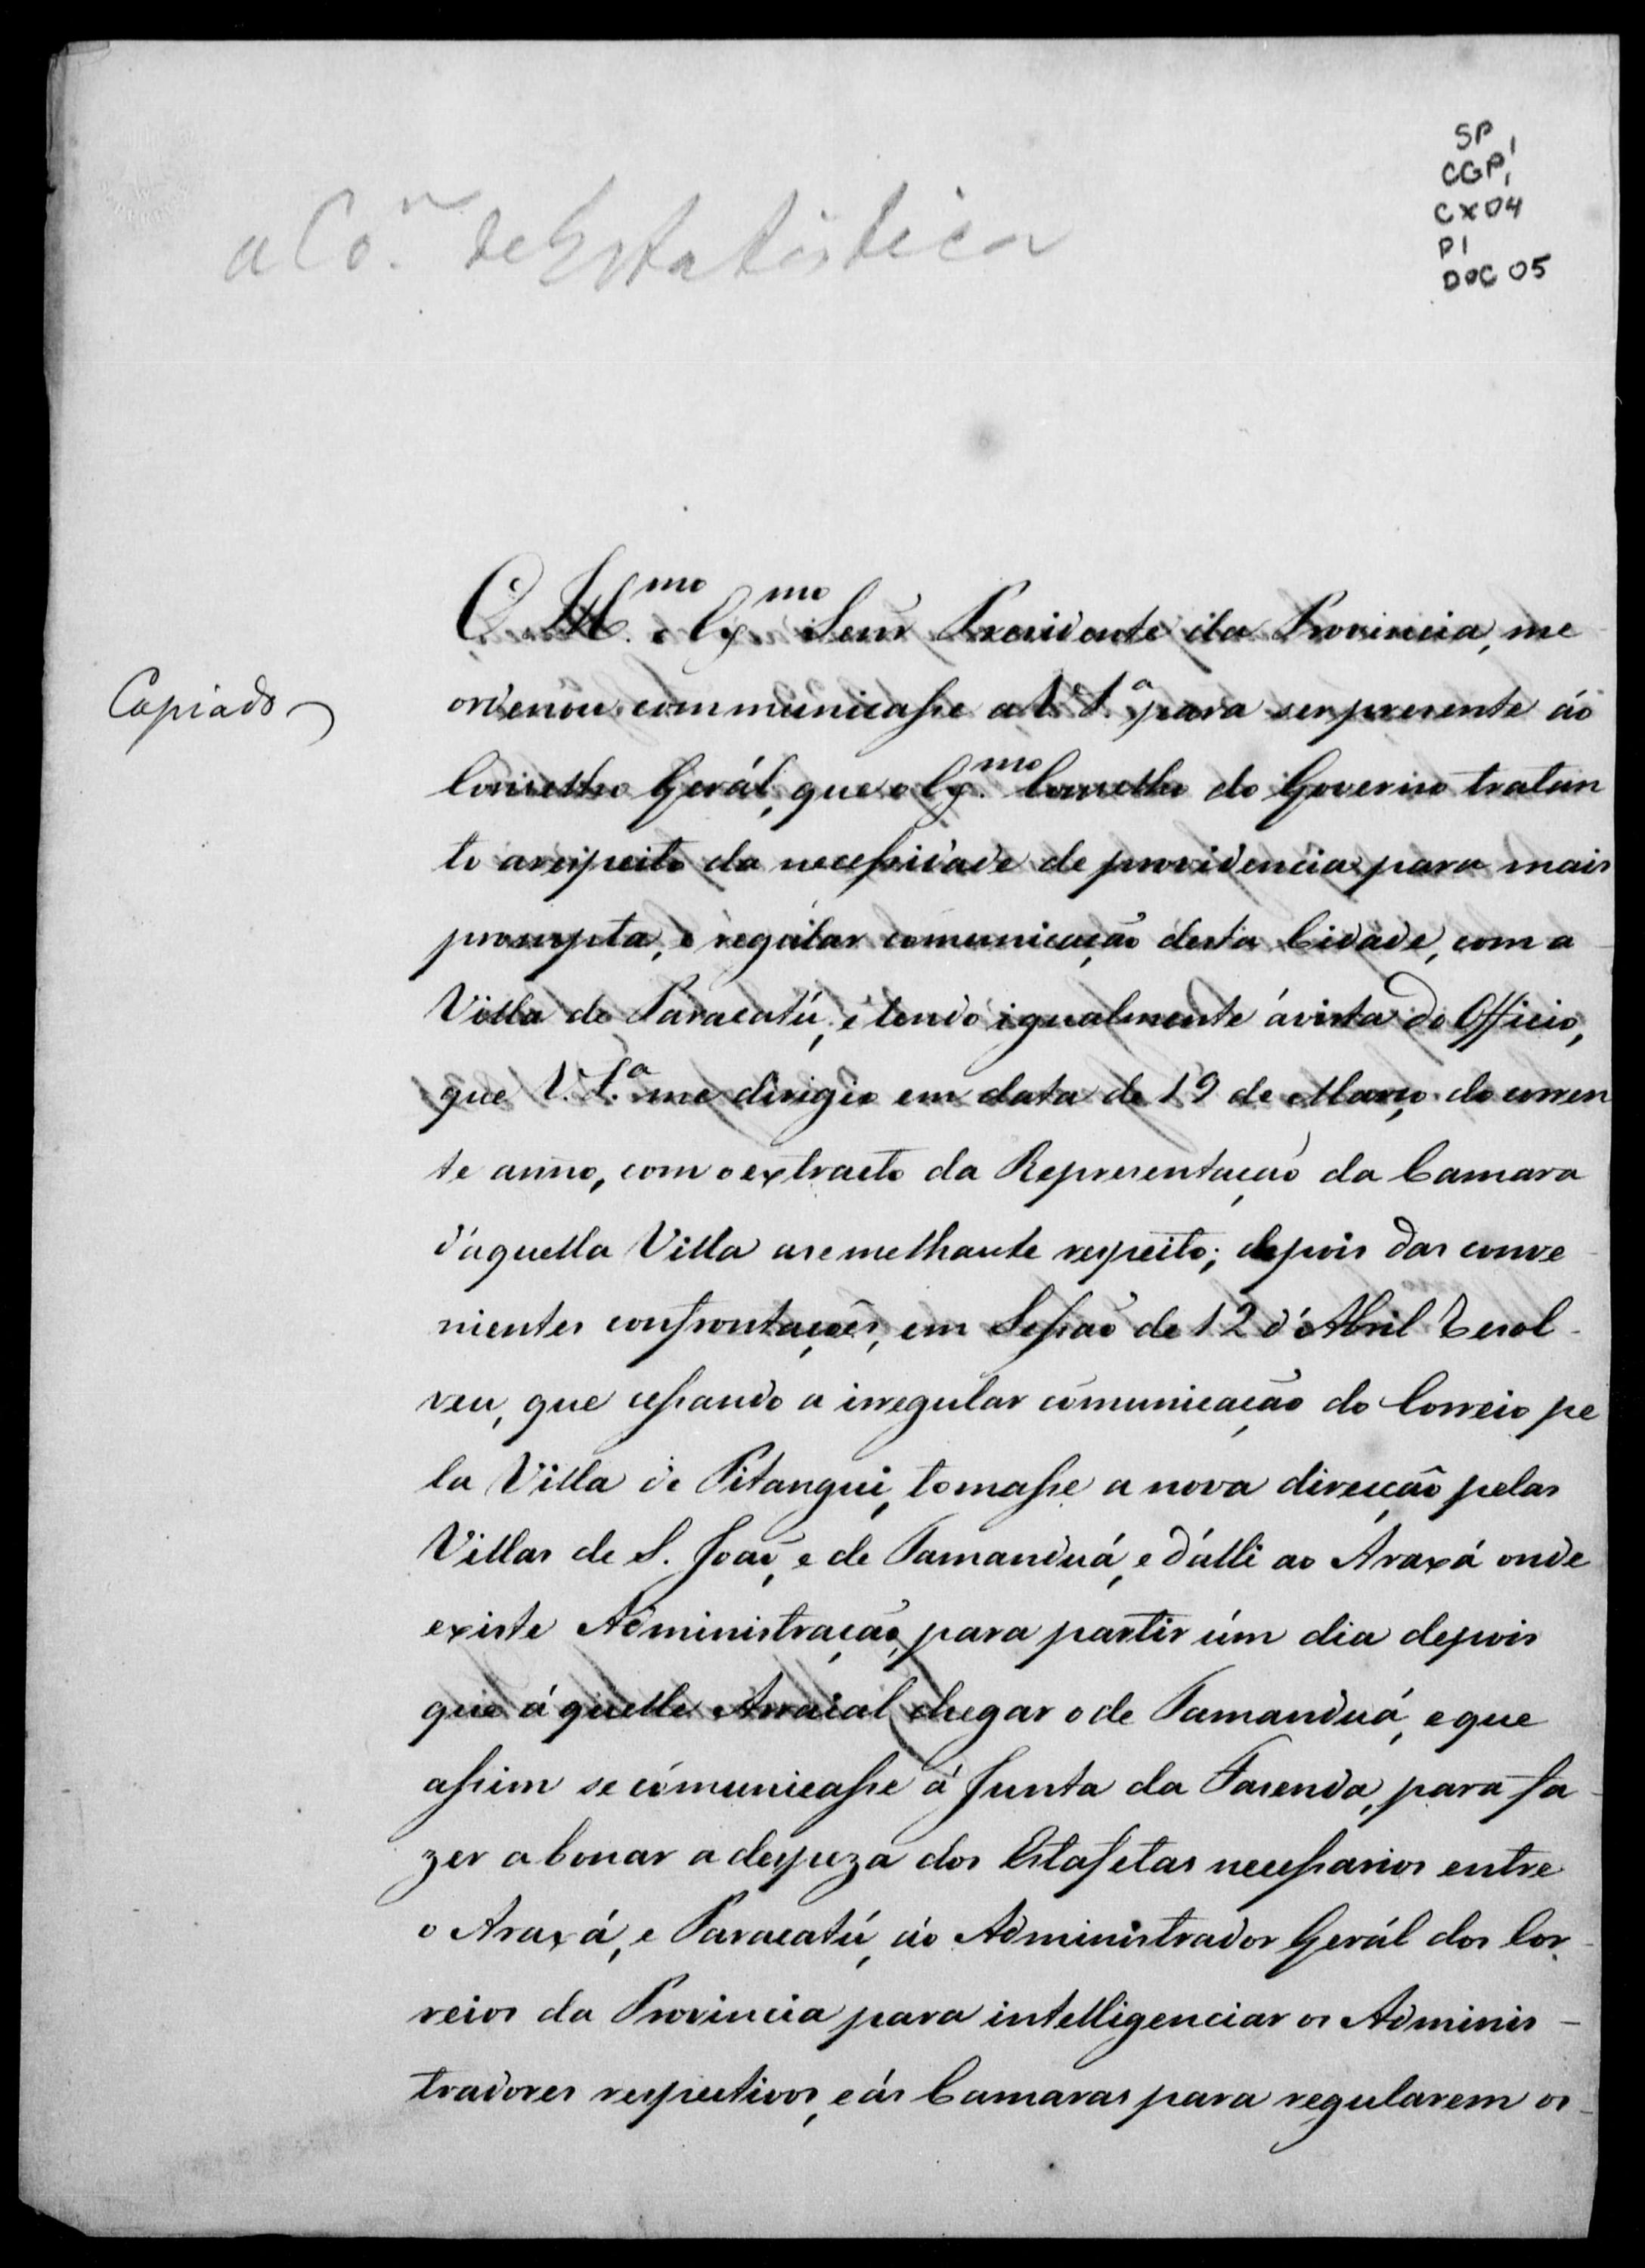 SP
CGP1,
CX04
P1
DOC 05
a Co.m de Estatistica
Copiado
O Ill.mo e Ex.mo Senr Prezidente da Provincia, me
ordenou communicasse a V. S.a para ser presente áo
Conselho Gerál, que o Ex.mo Conselho do Governo tratan
do arespeito da necessidade de providencia para mais
prompta, e regular comunicação desta Cidade, com a
Villa de Paracatú, e tendo igualmente ávista do Officio,
que V. S.a me dirigio em data de 19 de Março do corren
te anno, com o extracto da Representação da Camara
d'aquella Villa asemelhante respeito; depois das conve
nientes confrontações, em Sessão de 12 d'Abril Resol-
veu, que cessando a irregular comunicação do Correio pe
la Villa de Pitangui, tomasse a nova direcção pelas
Villas de S. João, e de Tamanduá, e d'álli ao Araxá onde
existe Administração, para partir úm dia depois
que áquelle Arraial chegar o de Tamanduá, e que
assim se comunicasse á Junta da Fasenda, para fa-
zer abonar a despeza dos Estafetas necessarios entre
o Araxá, e Paracatú, áo Administrador Gerál dos Cor-
reios da Provincia para intelligenciar os Adminis-
tradores respectivos, e ás Camaras para regularem os